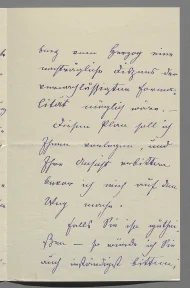 burg vom Herzog eine
nachträgliche Fassung der
vernachlässigten Forma-
lität möglich wäre. —
Diesen Plan soll ich
Ihnen vorlegen, und
Ihre Ansicht erbitten
bevor ich mich auf den
Weg mache.
Falls Sie ihn guthei-
ßen — so würde ich Sie
auch inständigst bitten,